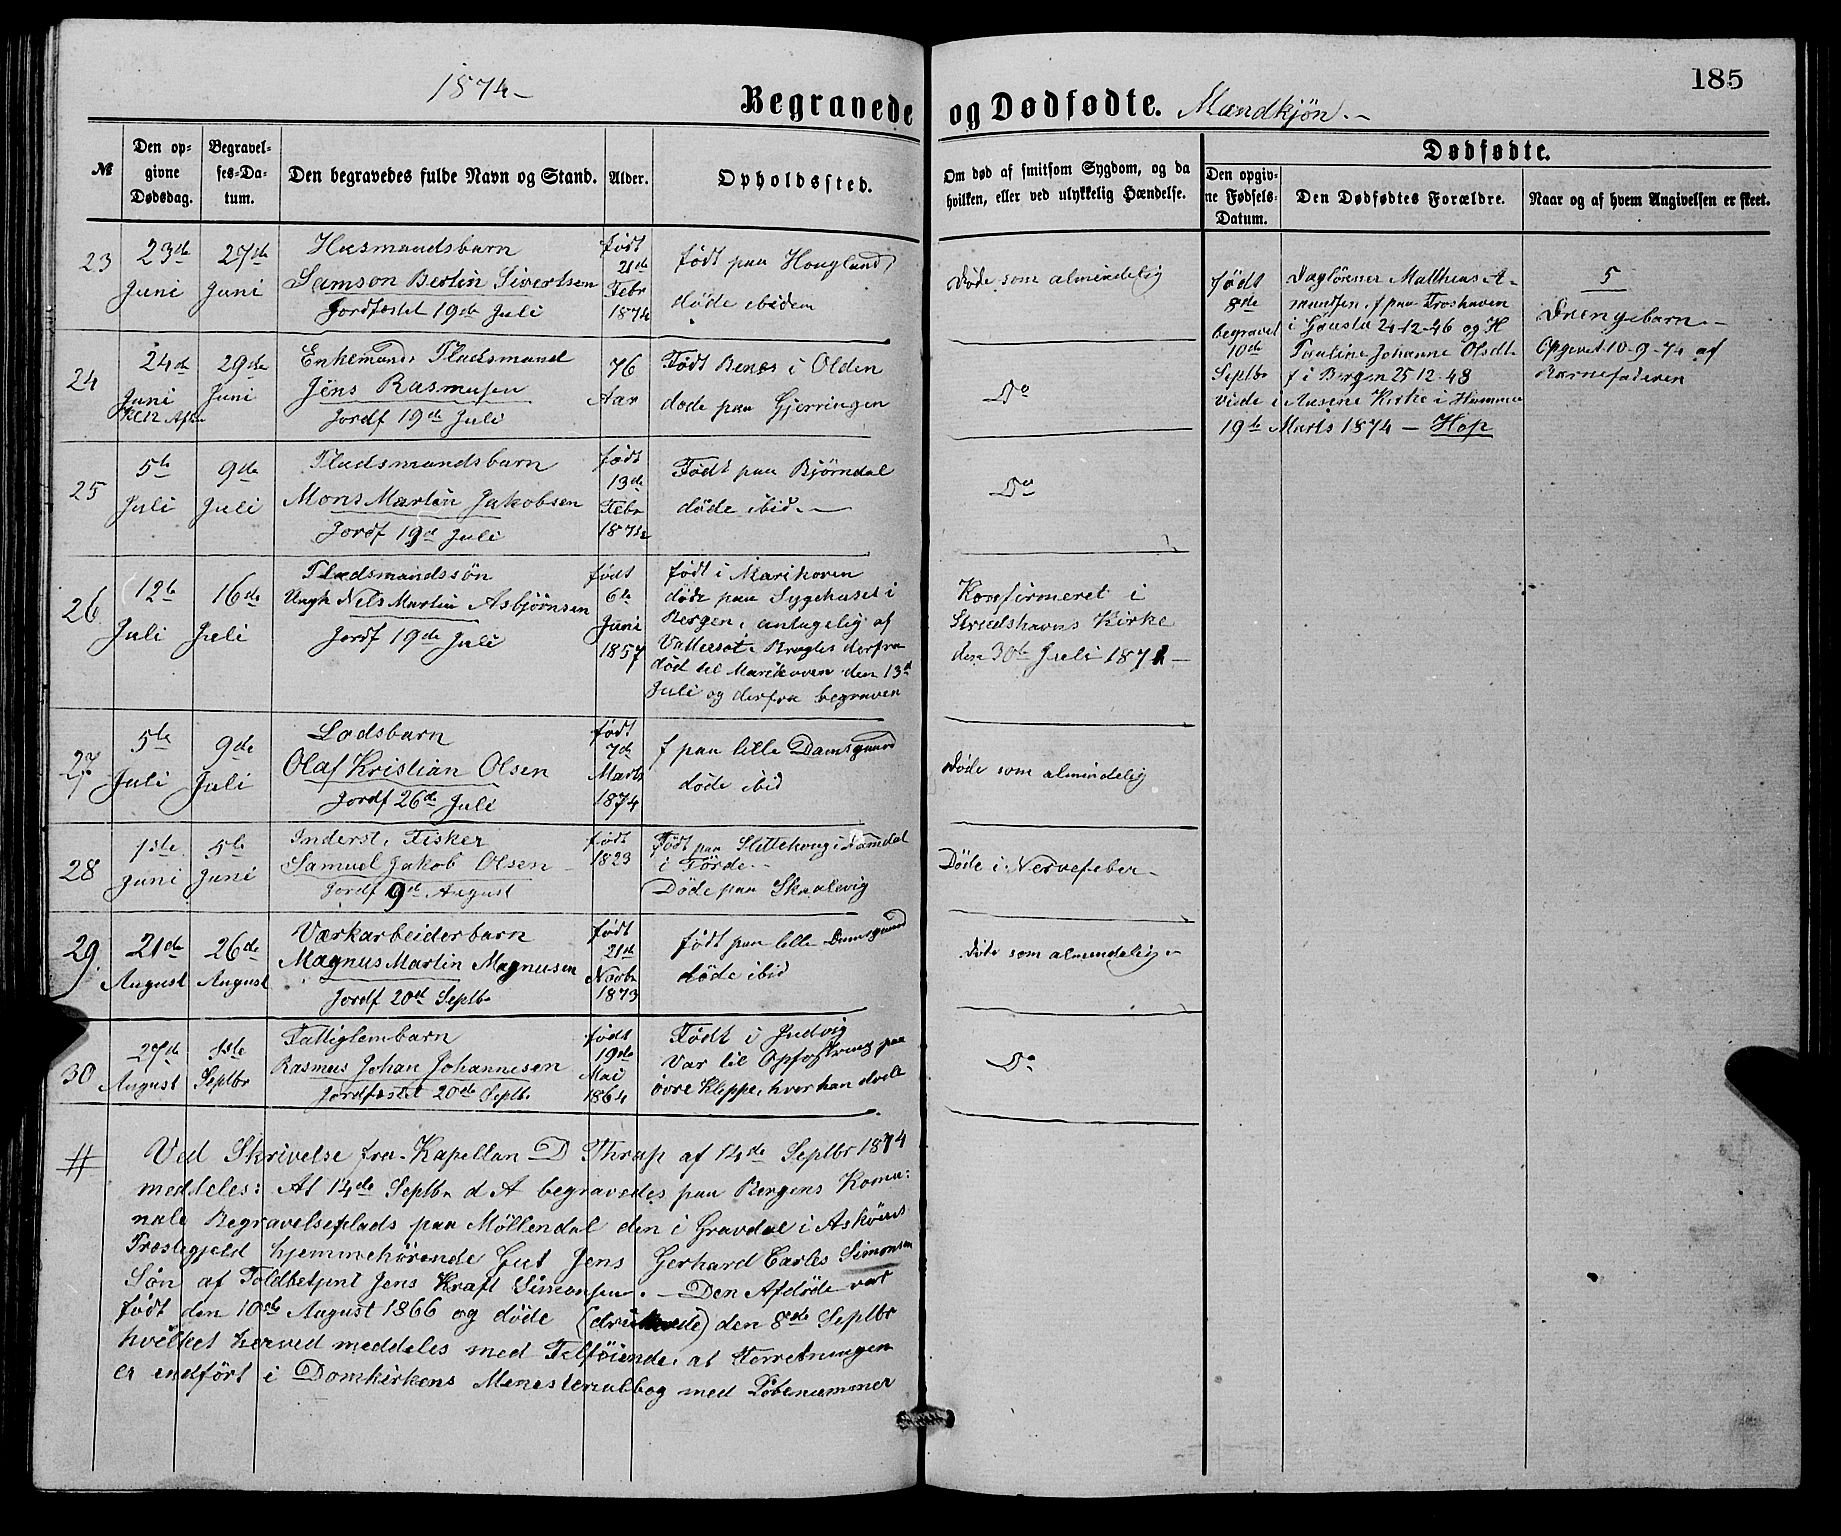 185
1874-
Begravede og Dødfødte. Mandkjøn.-
№
Den opgivne Dødsdag.
Begravelses-Datum.
Den begravedes fulde Navn og Stand.
Alder.
Opholdssted.
Om død af smitsom Sygdom, og da hvilken, eller ved ulykkelig Hændelse.
Dødfødte.
Den opgivne Fødsels-Datum.
Den Dødfødtes Forældre.
Naar og af hvem Angivelsen er skeet.
23
23de Juni
27de Juni
Husmandsbarn
Samson Bertin Sivertsen
Jordfæstet 19de Juli
født
21de
Febr
1874
født paa Hougland
døde ibidem
Døde som almindelig
24
24de
Juni
Kl 12 Aften
29de
Juni
Enkemand, Pladsmand
Jens Rasmusen
Jordf 19de Juli
76
Aar
Født Benæs i Olden
døde paa Gjerringen
Do
25
5te
Juli
9de
Juli
Pladsmandsbarn
Mons Martin Jakobsen
Jordf 19de Juli
født
13de
Febr
1874
Født paa Bjørndal
døde ibid.-
Do
26
12te
Juli
16de
Juli
Pladsmandssøn
Ungk Nils Martin Asbjørnsen
Jordf 19de Juli
født
6te
Juni
1857
født i Marikoven
døde paa Sygehuset i
Bergen, antagelig af
derfra
død til Marikoven den 13de
Juli og derfra begraven
Konfirmeret i
Strudshavns Kirke
den 30te Juli 1871-
27
5te
Juli
9de
Juli
Lodsbarn
Olaf Kristian Olsen
Jordf 26de Juli
født
7de
Marts
1874
f paa lille Damsgaard
døde ibid
Døde som almindelig
28
1ste
Juni
5te
Juni
Inderst, Fisker
Samuel Jakob Olsen
Jordf 9de August
født
1823
Født paa
i Førde.-
Døde paa Skaalevig
Døde i Nervefeber-
29.
21de
August
26de
August
Værkarbeiderbarn
Magnus Martin Magnusen
Jordf 20de Septbr
født
21de
Novbr
1873
født paa lille Damsgaard
døde ibid
Døde som almindelig-
30
27de
August
1ste
Septbr
Fattiglembarn
Rasmus Johan Johannesen
Jordfæstet 20de Septbr
født
19de
Mai
1864
Født i
Var til Opfostring paa
øvre Kleppe, hvor han døde
Do
født
8de
Begravet
10de
Septbr
Daglønner Matthias A-
mundsen, f paa Froshaven
i Gausta 24-12-46 og H
Pauline Johanne Olsdt
f i Bergen 25-12-48
Viede i Kirke i Hammer
19de Marts 1874 - Hop
5
Drengebarn-
Opgivet 10-9-74 af
Barnefaderen
#
Ved Skrivelse fra Kapellan D Thrap af 14de Septbr 1874
meddeles: At 14de Septbr d A begravedes paa Bergens Komu:
nale Begravelseplads paa Møllendal den i Gravdal i Askøens
Præstegjeld hjemmehørende Gut Jens Gerhard Carles Simonsen
Søn af Toldbetjent Jens Kraft Simonsen. - Den Afdøde var
født den 10de August 1866 og døde (druknede) den 8de Septbr
hvilket herved meddeles med Tilføiende, at Forretningen
er indført i Domkirkens Ministerialbog med Løbenummer